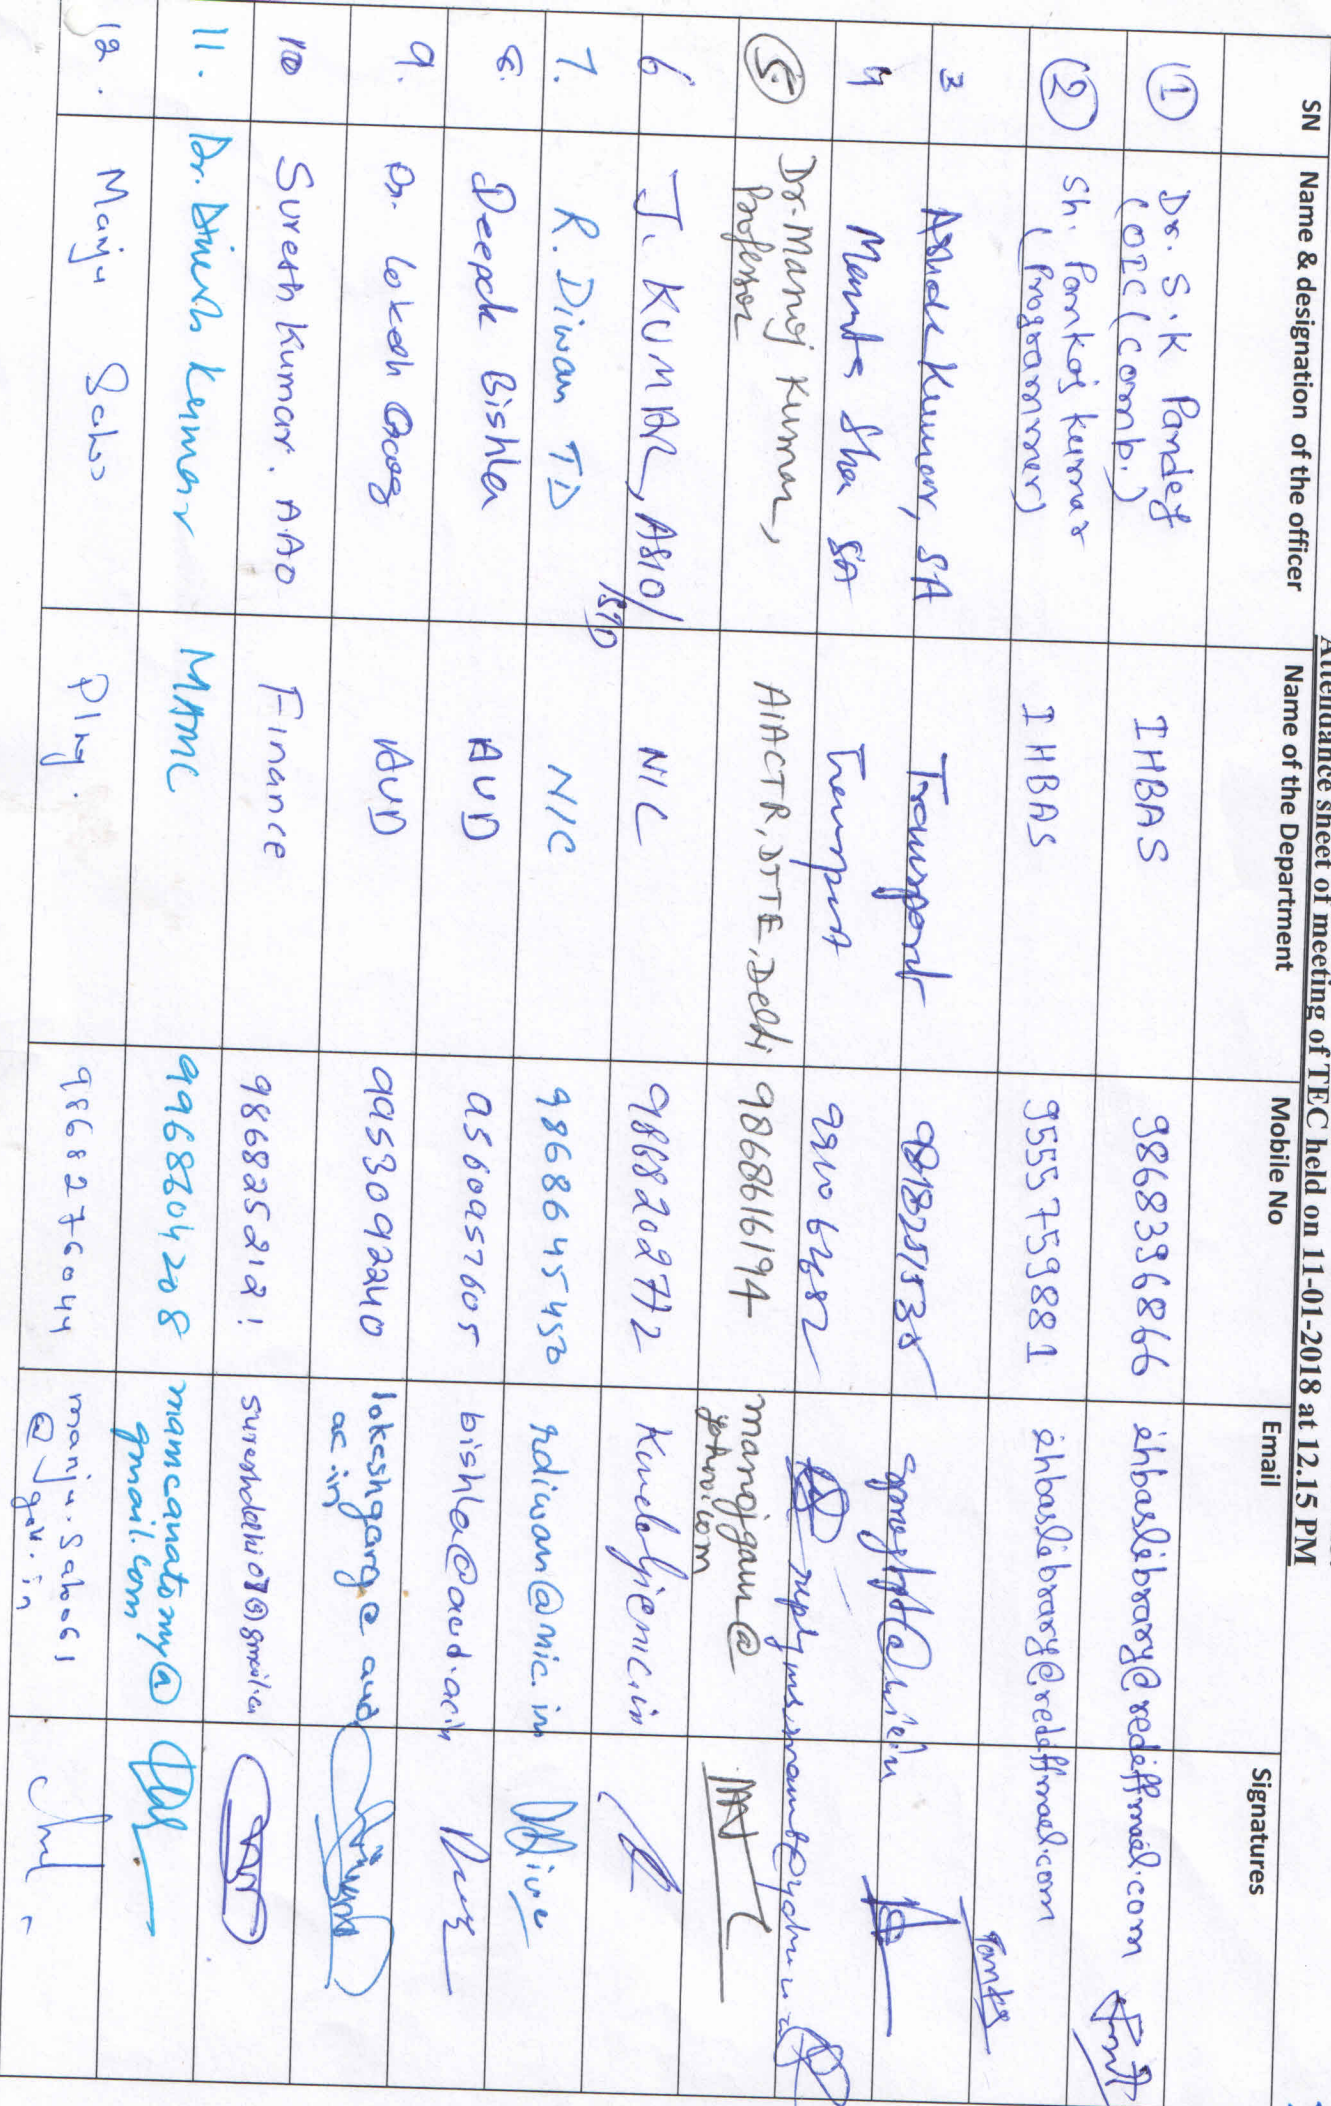 Attendance sheet of meeting of TEC held on 11-01-2018 at 12.15 PM
SN Name & designation of the officer Name of the Department Mobile No Email Signatures
1 Dr. S.K Pandey IHBAS 9868396866 ihbaslibrary@rediffmail.com
(OIC (Comb.)
2 Sh. Pankaj kumar IHBAS 9555759881 ihbaslibrary@rediffmail.com
(Programmer)
3 Ashok Kumar, SA Transport
4 Mamta SA Transport
5. Dr. Manoj Kumar, AIACTR, DTTE, Delhi 9868616194 manojgaur@
Professor yahoo.com
6 J. KUMAR, ASIO/ NIC 9868202772
7. R. Diwan TD NIC 9868645450 rdiwan@nic.in
8. Deepak Bishla AUD 9560957605 bishla@aud.ac.in
9. Dr. Lokesh Garg AUD 9953092240 lokeshgarg@aud
ac.in
10 Suresh Kumar. AAO Finance 9868252121
11. Dr. Dinesh Kumar MAMC 9968604208 mamcanatomy@
gmail.com
12. Manju Sahoo Plng. 9868276044 manju.sahoo61
@gov.in